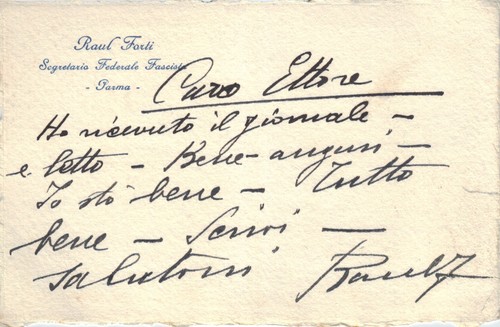 Raul Forti
Segretario Federale Fascista
- Parma -
Caro Ettore
Ho ricevuto il giornale -
e letto - Bene - auguri -
Io stò bene - Tutto
bene - Scrivi -
Salutoni Raul F